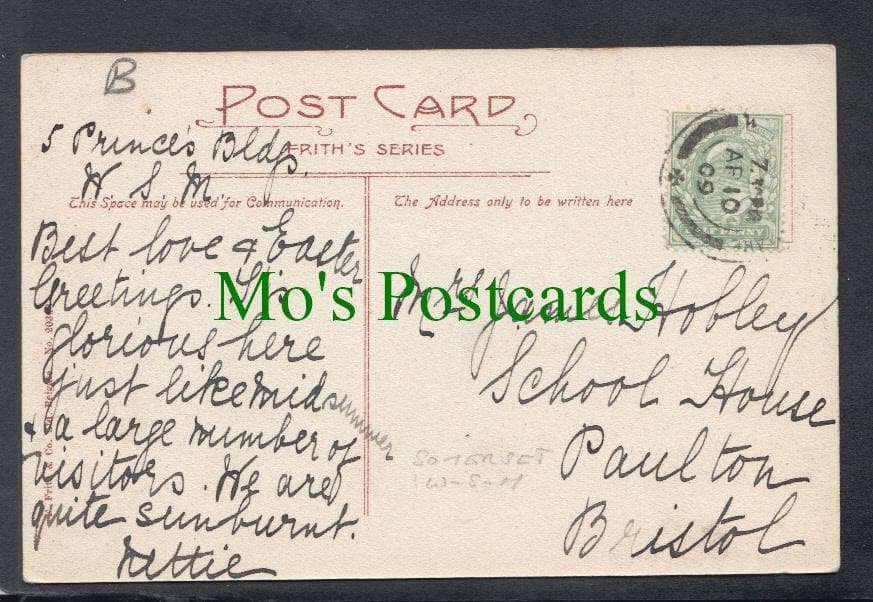 B
POST CARD
FRITH'S SERIES
This Space may be used for Communication.
The Address only to be written here
5 Prince's Bldgs.
W S M
Best love & Easter
Greetings. 'Tis
glorious here
just like midsummer
& a large number of
visitors. We are
quite sunburnt.
Nettie
Mrs James Hobley
School House
Paulton
Bristol
SOMERSET
W-S-M
AP 10
09
PENNY
Mo's Postcards
Frith & Co. Ltd. Reigate. No.